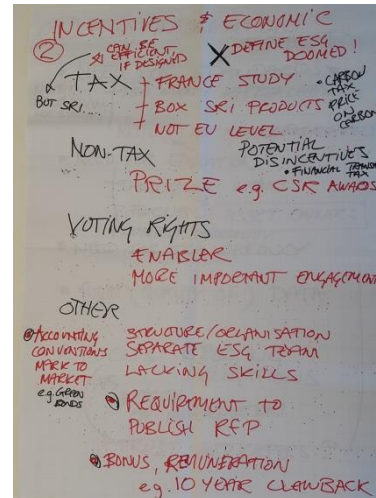 INCENTIVES & ECONOMIC
2
CAN BE
EFFICIENT
IF DESIGNED
X DEFINE ESG
DOOMED!
TAX
BUT SRI...
FRANCE STUDY
BOX SRI PRODUCTS
NOT EU LEVEL
• CARBON
TAX
PRICE
ON
CARBON
NON-TAX
POTENTIAL
DISINCENTIVES
• FINANCIAL TRANS
TAX
PRIZE e.g. CSR AWARDS
VOTING RIGHTS
ENABLER
MORE IMPORTANT ENGAGEMENT
OTHER
ACCOUNTING
CONVENTIONS
MARK TO
MARKET
e.g. GREEN
BONDS
STRUCTURE/ORGANISATION
SEPARATE ESG TEAM
LACKING SKILLS
REQUIREMENT TO
PUBLISH RFP
BONUS, REMUNERATION
e.g. 10 YEAR CLAWBACK